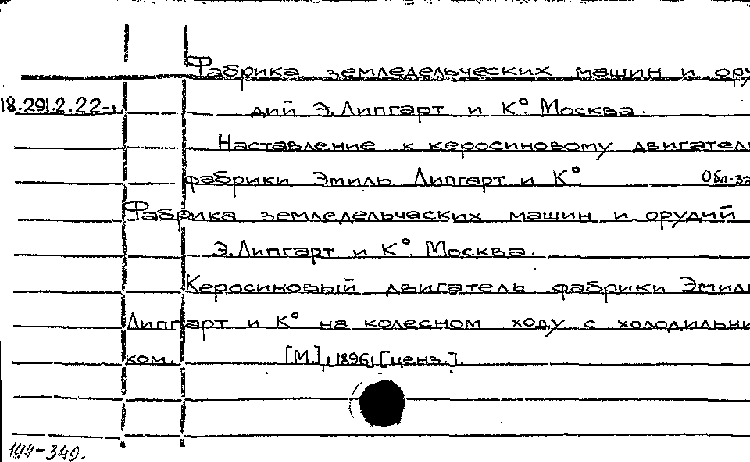 Фабрика земледельческих машин и ору
18.291.2.22-1 дий Э. Липгарт и К° Москва.
Наставление к керосиновому двигател
фабрики Эмиль Липгарт и К° Обл-за
Фабрика земледельческих машин и орудий
Э. Липгарт и К° Москва.
Керосиновый двигатель фабрики Эмил
Липгарт и К° на колесном ходу с холодильни
ком. [М.], 1896, [ценз.].
144-340.